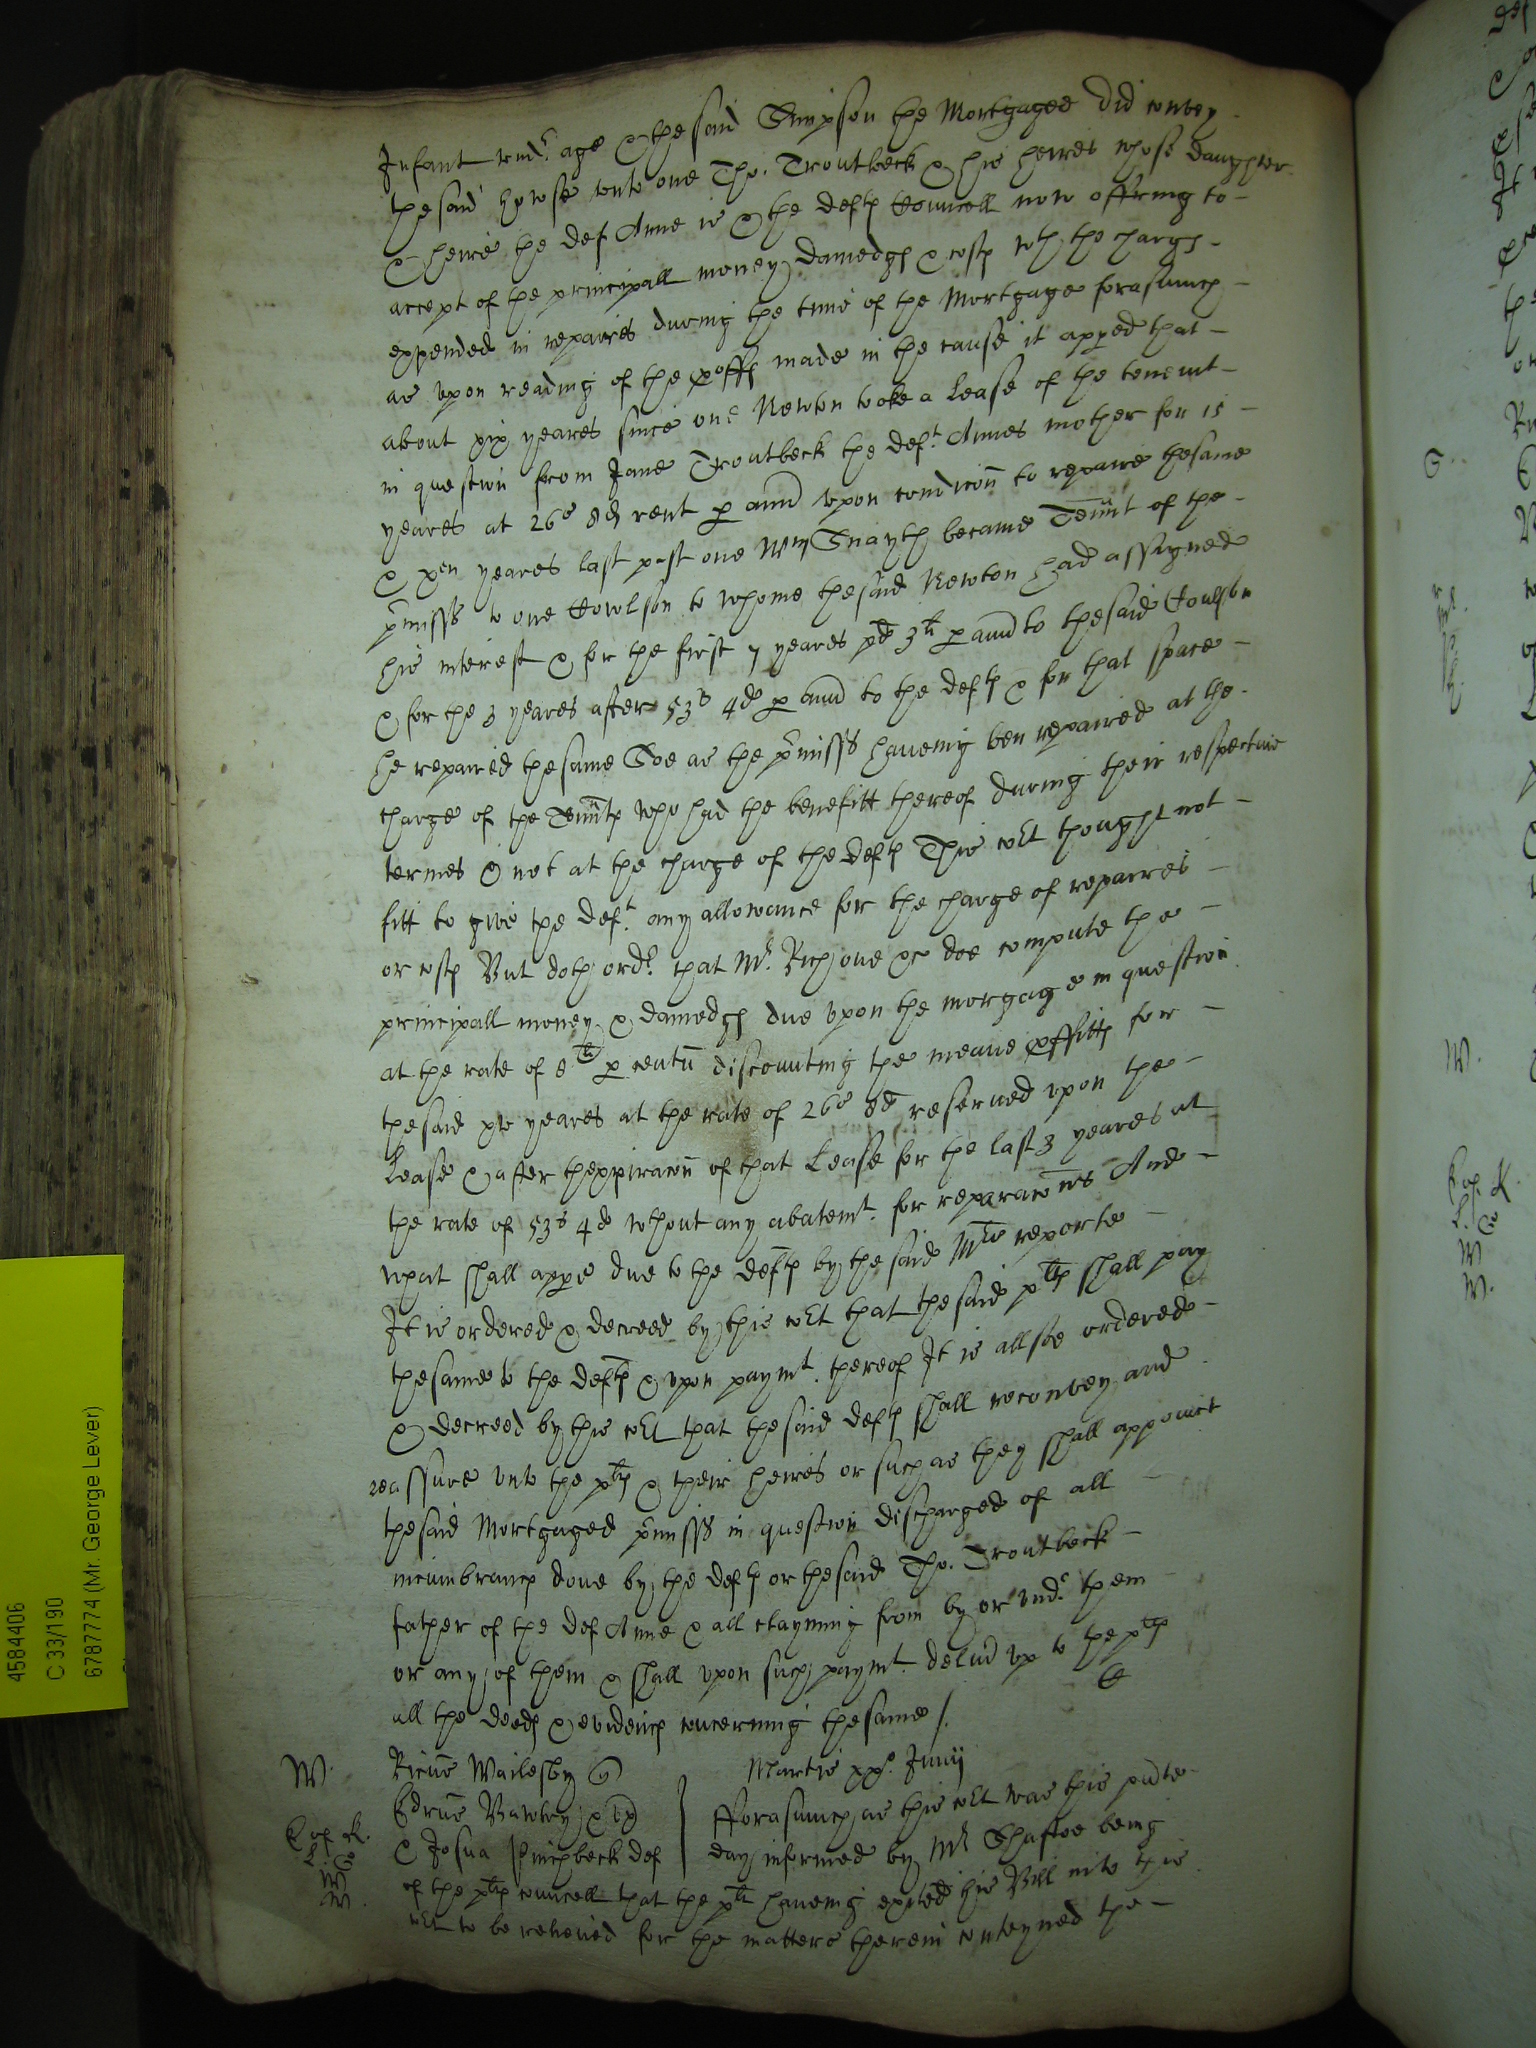 Infant vnd.r age & the said Simpson the Mortgagee did convey
the said howse vnto one Tho. Troutbeck & his heires whose daughter
& heire the def Anne is & the defts Councell now offring to
accept of the principall money damedgs & costs wth the chargs
expended in repaires during the time of the Mortgage forasmuch
as vpon reading of the proffs made in the cause it apped that
about xix yeares since one Newton tooke a Lease of the tenemt
in question from Jane Troutbeck the deft. Annes mother for 15
yeares at 26s 8d rent p ann vpon condicon to repaire the same
& xen yeares last past one Wm Snayth became Tennt of the
p'misss to one Cowlson to whome the said Newton had assigned
his interest & for the first 7 yeares pd 3li p ann to the said Coulson
& for the 3 yeares after 53s 4d p ann to the defts & for that space
he repaired the same Soe as the p'misss haueing ben repaired at the
charge of the Tennts who had the benefitt thereof during their respectiue
termes & not at the charge of the defts This cort thought not
fitt to give the deft. any allowance for the charge of repaires
or costs But doth ord.r that Mr. Rich one &c doe compute the
principall money & damedgs due vpon the mortgage in question
at the rate of 8li p centu discounting the meane proffitts for
the said yeares at the rate of 26s 8d reserued vpon the
Lease & after thexpiracon of that Lease for the last 3 yeares at
the rate of 53s 4d wthout any abatemt. for reparacons And
what shall appe due to the defts by the said Mrs reporte
It is ordered & decreed by this cort that the said plts shall pay
the same to the defts & vpon paymt. thereof It is allsoe ordered
& decreed by this cort that the said defts shall reconvey and
reassure vnto the plts & their heires or such as they shall appoint
the said Mortgaged p'misss in question discharged of all
incumbrancs done by the defts or the said Tho. Troutbeck
father of the def Anne & all clayming from by or vnd.r them
or any of them & shall vpon such paymt. deliu vp to the plts
all the deeds & evidencs concerning the same /.
W. Ricus Wailesby q
Martis xxo. Junij
Edrus Vawtry
& Josua Pinchbeck def
fforasmuch as this cort was this pnte
day informed by Mr Shaftoe being
of the plts councell that the plt haueing exited his Bill into this
cort to be relieued for the matters therein conteyned the
4584406
C 33/190
6787774 (Mr. George Lever)